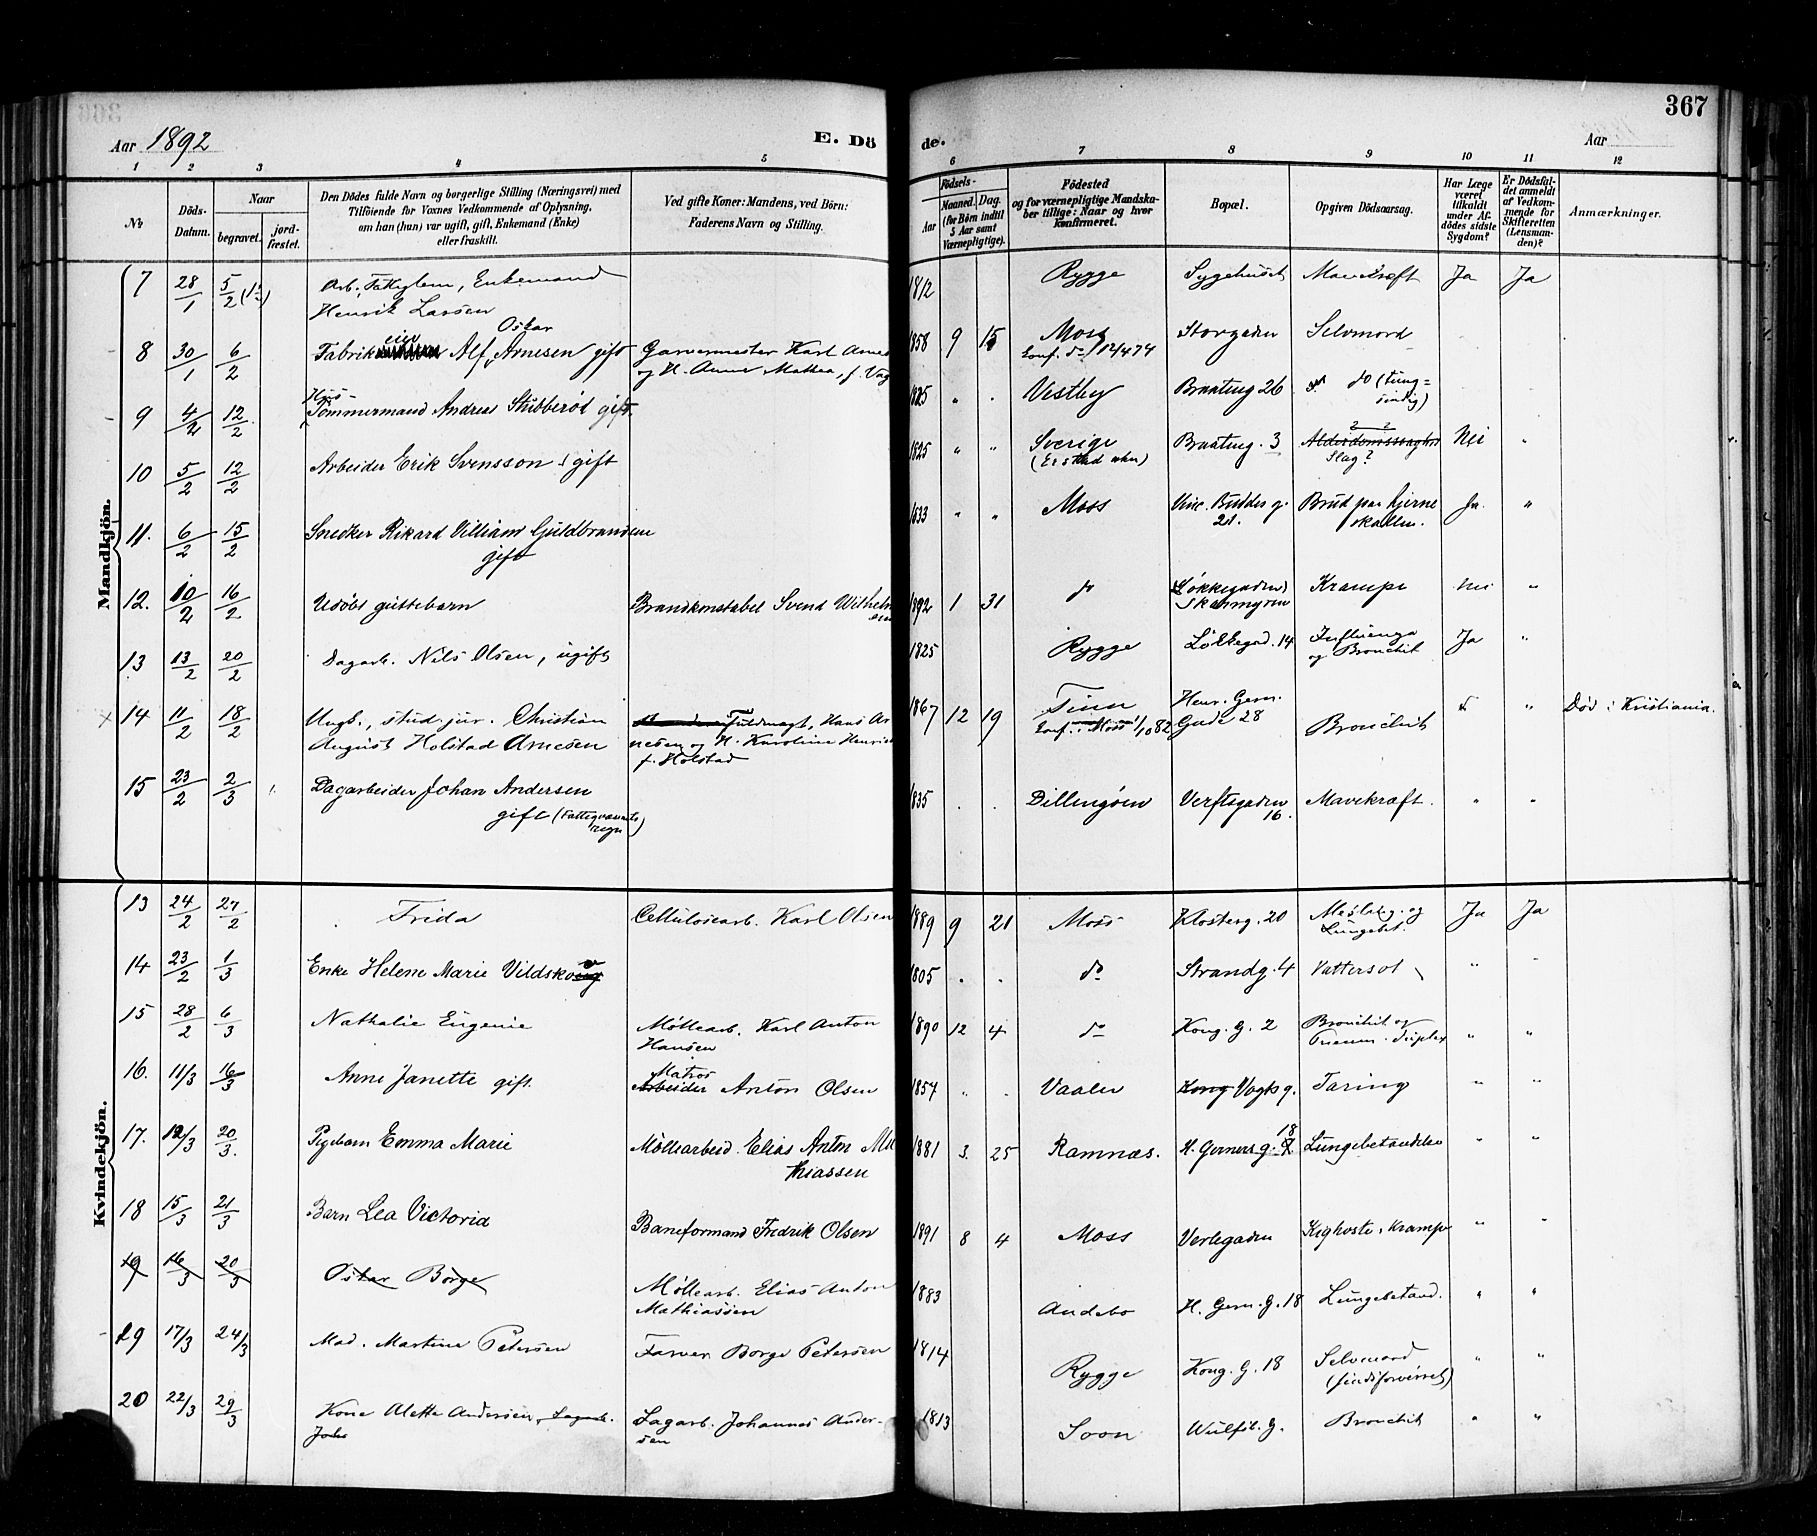 367
Aar 1892
E. Dö
de.
Aar
1 2 3 4 5 6 7 8 9 10 11 12
№
Döds-Datum.
Naar
begravet.
jord-fæstet.
Den Dödes fulde Navn og borgerlige Stilling (Næringsvei) med
Tilföiende for Voxnes Vedkommende af Oplysning,
om han (hun) var ugift, gift, Enkemand (Enke)
eller fraskilt.
Ved gifte Koner: Mandens, ved Börn:
Faderens Navn og Stilling.
Födsels-
Aar
Maaned. Dag.
(for Börn indtil
5 Aar samt
Værnepligtige).
Födested
og for værnepligtige Mandska-
ber tillige: Naar og hvor
konfirmeret.
Bopæl.
Opgiven Dödsaarsag.
Har Læge
været
tilkaldt
under Af-
dödes sidste
Sygdom?
Er Dödsfal-
det anmeldt
af Vedkom-
mende for
Skifteretten
(Lensman-
den)?
Anmærkninger.
Mandkjön.
7 28/1 5/2 Arb., Fattiglem, Enkemand
Henrik Larsen
1812 Rygge Sygehuset Mavekræft Ja Ja
8 30/1 6/2 Fabrikeier Alf Oskar Arnesen gift
Garvermester Karl Arnes
og H. Anne Mathea, f. Vog
1858 9 15 Moss Storgaden Selvmord
Conf. do 12/4 74
9 4/2 12/2 Hus-
Tömmermand Andreas Stubberöd gift
1825 " . Vestby Braateng. 26 do (tung=
sindig)
10 5/2 12/2 Arbeider Erik Svensson gift
1825 " " Sverige Braateng. 3 Alderdomssvaghed Nei "
Slag?
11. 6/2 15/2 Snedker Rikard Villiam Guldbrandsen
gift
1833 " " Moss Vinc. Buddes g. 21. Brud paa hjerne
skallen. Ja. "
12. 10/2 16/2 Udöbt guttebarn
Brandkonstabel Svend Wilhelm
1892 1 31 do Løkkegaden
Skarmyren Krampe Nei "
13 13/2 20/2 Dagarb. Nils Olsen, ugift
1825 Rygge Løkkegad. 14 Influenza
og Bronchit Ja "
14 11/2 18/2 Ungk., stud. jur. Christian
August Holstad Arnesen
Fuldmægt. Hans Ar
nesen og H. Karoline Henriette
f. Holstad
1867 12 19 Tinn Henr. Gern.
Gade 28 Bronchit " Död i Kristiania.
Conf. i Moss 1/10 82
15 23/2 2/3 Dagarbeider Johan Andersen
gift (Fattigvæsenets
regn)
1835 . . Dillingöen Verftsgaden
16. Mavekræft. " "
Kvindekjön.
13 24/2 27/2 Frida Cellulosearb. Karl Olsen
1889 9 21 Moss Klosterg. 20 Mesling. og
Lungebet. Ja Ja
14 23/2 1/3 Enke Helene Marie Vildskov
1805 . . do Strandg. 4 Vattersot " "
15 28/2 6/3 Nathalie Eugenie Møllearb. Karl Anton
Hansen
1890 12 4 do Kong. G. 2 Bronchit og
Pneum. duplex " "
16. 11/3 16/3 Anne Janette gift. Matros
Arbeider Anton Olsen
1854 " . Vaaler Kong Vogts g. Tæring " "
17. 12/3 20/3. Pigebarn Emma Marie Møllearbeid. Elias Anton Ma
thiassen
1881 3. 25 Ramnæs. H. Gerners g. 18 Lungebetændelse " "
18 15/3 21/3 Barn Lea Victoria Baneformand Fredrik Olsen
1891 8 4 Moss Verlegaden Kighoste, Krampe " "
19 16/3 20/3 Oskar Borge Møllearb. Elias Anton
Mathiassen
1883 Andebo H. Gern. G. 18 Lungebetænd. " "
19 17/3 24/3 Mad. Martine Petersen Farver Borge Petersen
1814 Rygge Kong. G. 18 Selvmord
(sindsforvirret) " "
20 22/3 29/3 Kone Alette Andersen, Sagarb.
Joh
Sagarb. Johannes Ander-
sen
1813 Soon Wulfsb. G. Bronchit " "